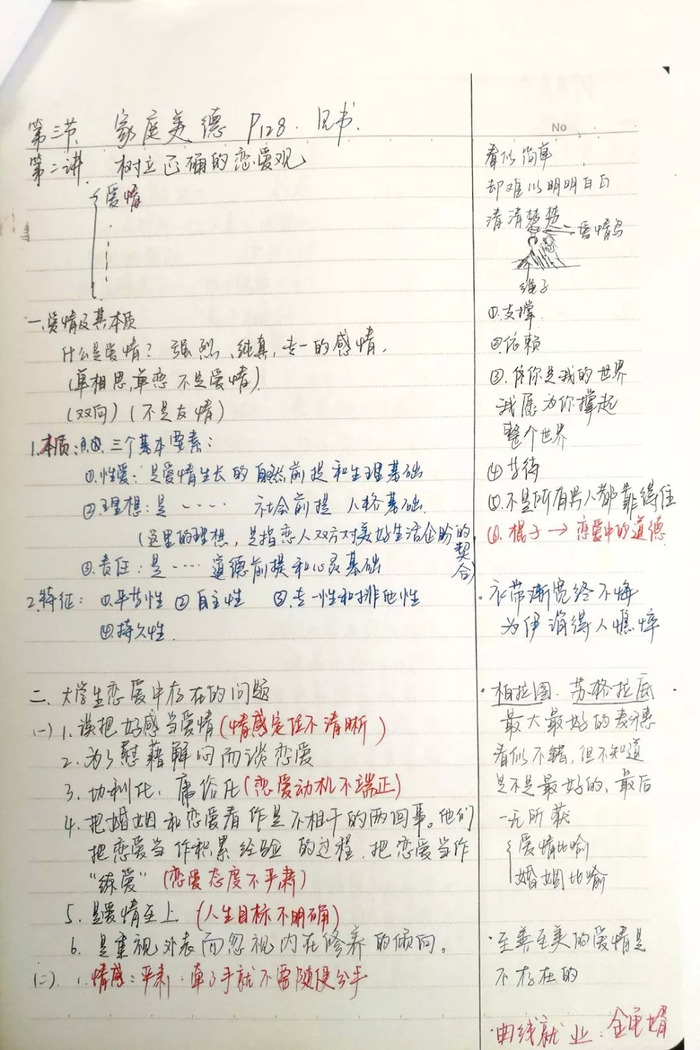 第三节 家庭美德 P128. 见书.
第二讲. 树立正确的恋爱观
爱情
一、爱情及其本质
什么是爱情？强烈、纯真、专一的感情.
(单相思,单恋 不是爱情)
(双向)(不是友情)
1.本质: 三个基本要素:
①性爱: 是爱情生长的自然前提和生理基础
②理想: 是 …… 社会前提 人格基础.
(这里的理想, 是指恋人双方对美好生活企盼的契合)
③责任: 是 …… 道德前提和心灵基础
2.特征: ①平等性 ②自主性 ③专一性和排他性
④持久性.
二、大学生恋爱中存在的问题
(一) 1. 误把好感当爱情 (情感定位不清晰)
2. 为了慰藉解闷而谈恋爱
3. 功利化, 庸俗化 (恋爱动机不端正)
4. 把婚姻和恋爱看作是不相干的两回事。他们
把恋爱当作积累经验的过程. 把恋爱当作
“练爱” (恋爱态度不严肃)
5. 是爱情至上 (人生目标不明确)
6. 是重视外表而忽视内在修养的倾向。
(二). 1. 情感: 严肃. 牵了手就不要随便分手
No
看似简单
却难以明明白白
清清楚楚
爱情鸟
①.支撑
②依赖
③.你是我的世界
我愿为你撑起
整个世界
④等待
⑤.不是所有男人都靠得住
⑥. 棍子 → 恋爱中的道德
· 衣带渐宽终不悔
为伊消得人憔悴
· 柏拉图. 苏格拉底
最大最好的麦穗
看似不错, 但不知道
是不是最好的, 最后
一无所获
爱情比喻
婚姻比喻
· 至善至美的爱情是
不存在的
· 曲线就业: